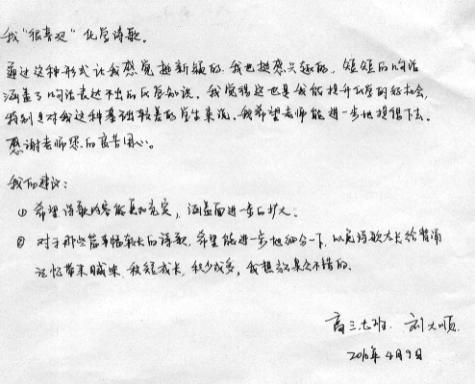 我"很喜欢"化学诗歌。
通过这种形式让我感觉挺新颖的,我也挺感兴趣的,短短的几句话
涵盖了几句话表达不出的化学知识。我觉得这也是我能提升化学的好机会,
特别是对我这种基础较差的学生来说。我希望老师能进一步地提倡下去。
感谢老师您的良苦用心。
我的建议:
① 希望诗歌内容能更加充实,涵盖面进一步的扩大。
② 对于那些篇幅较长的诗歌,希望能进一步地细分一下,以免诗歌太长给背诵
记忆带来,积少成多,我想效果会不错的。
高三七班 刘大顺
2016年4月9日